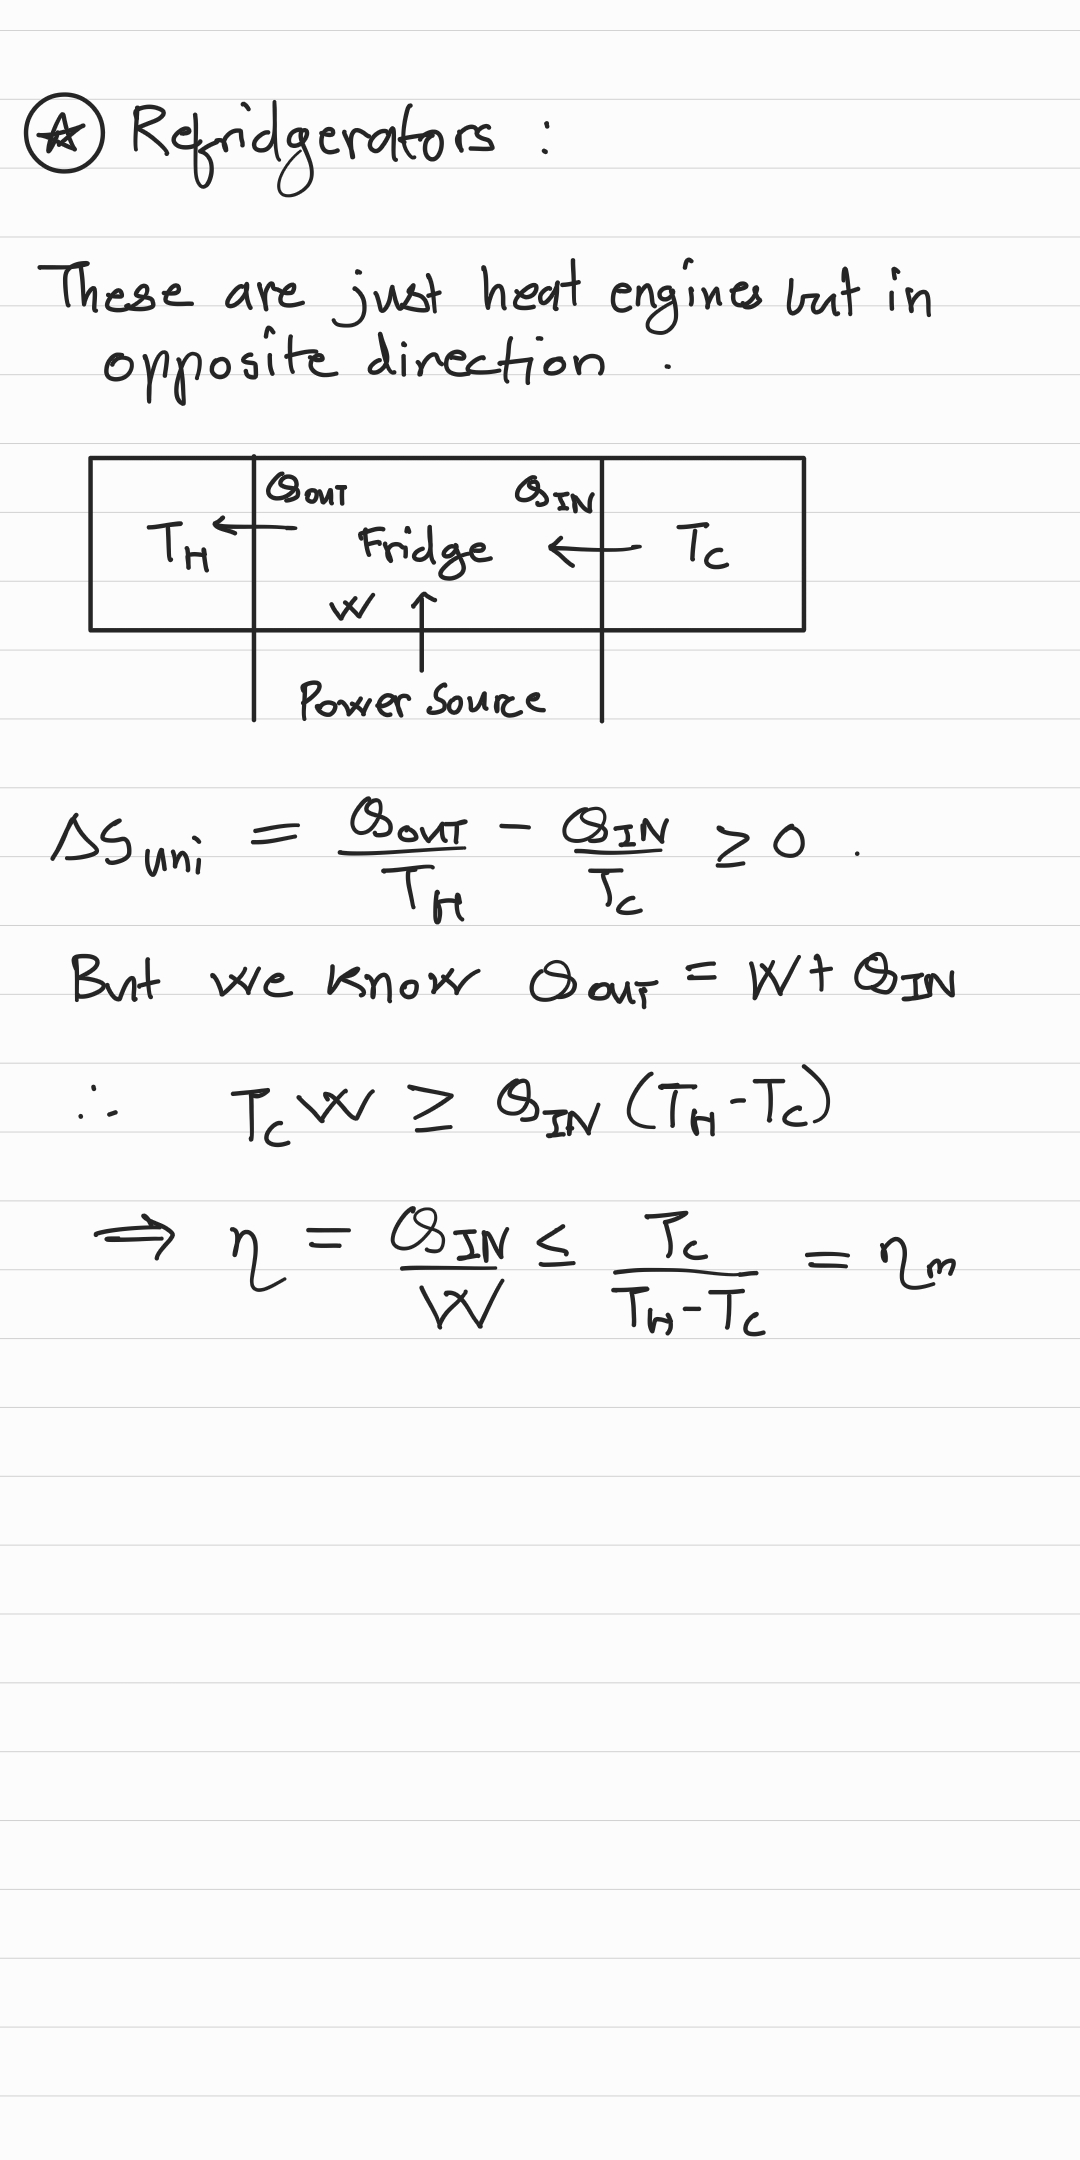 Refridgerators :
These are just heat engines but in
opposite direction .
Q_OUT Q_IN
T_H Fridge T_C
W
Power Source
ΔS_uni = Q_OUT/T_H - Q_IN/T_C ≥ 0 .
But we know Q_OUT = W + Q_IN
∴ T_C W ≥ Q_IN (T_H - T_C)
⇒ η = Q_IN/W ≤ T_C/(T_H - T_C) = η_m